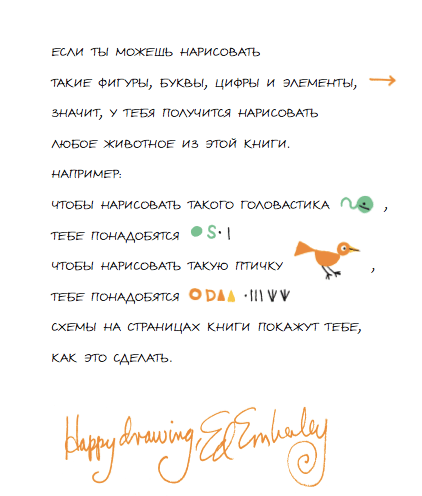 ЕСЛИ ТЫ МОЖЕШЬ НАРИСОВАТЬ
ТАКИЕ ФИГУРЫ, БУКВЫ, ЦИФРЫ И ЭЛЕМЕНТЫ,
ЗНАЧИТ, У ТЕБЯ ПОЛУЧИТСЯ НАРИСОВАТЬ
ЛЮБОЕ ЖИВОТНОЕ ИЗ ЭТОЙ КНИГИ.
НАПРИМЕР:
ЧТОБЫ НАРИСОВАТЬ ТАКОГО ГОЛОВАСТИКА ,
ТЕБЕ ПОНАДОБЯТСЯ S · I
ЧТОБЫ НАРИСОВАТЬ ТАКУЮ ПТИЧКУ ,
ТЕБЕ ПОНАДОБЯТСЯ O D · III
СХЕМЫ НА СТРАНИЦАХ КНИГИ ПОКАЖУТ ТЕБЕ,
КАК ЭТО СДЕЛАТЬ.
Happy drawing, Ed Emberley